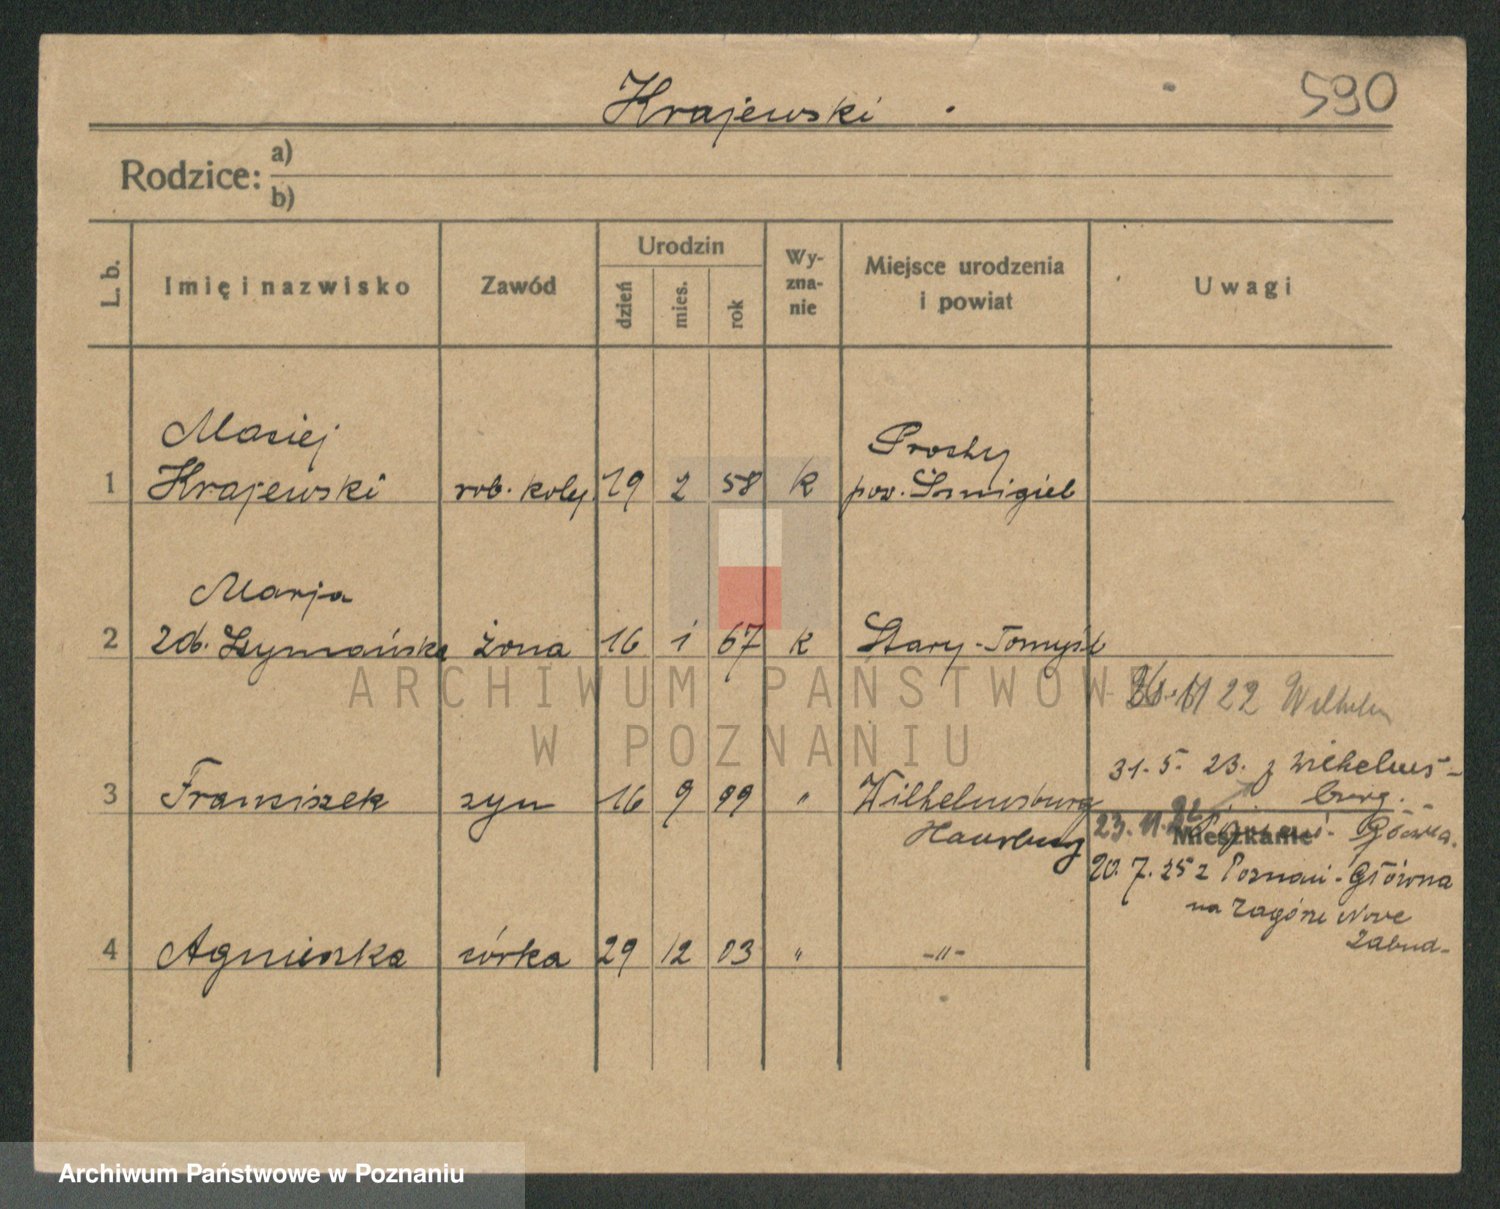 Krajewski
590
Rodzice: a)
b)
L. b.
Imię i nazwisko
Zawód
Urodzin
dzień
mies.
rok
Wy-
zna-
nie
Miejsce urodzenia
i powiat
Uwagi
Maciej
1 Krajewski rob. kolej 19 2 58 k
Prochy
pow. Śmigiel
Marja
2 zdb. Szymańska żona 16 1 67 k Stary-Tomyśl
22 Wilhelm
3 Franciszek syn 16 9 99 " Wilhelmsburg
Hamburg
31. 5. 23. z Wilhelms-
burg.
23. 11. 22 Główna.
Mieszkanie
20. 7. 25 z Poznań-Główna
na Zagórze Nowe
Zabud-
4 Agnieszka córka 29 12 03 " -"-
ARCHIWUM PAŃSTWOWE
W POZNANIU
Archiwum Państwowe w Poznaniu